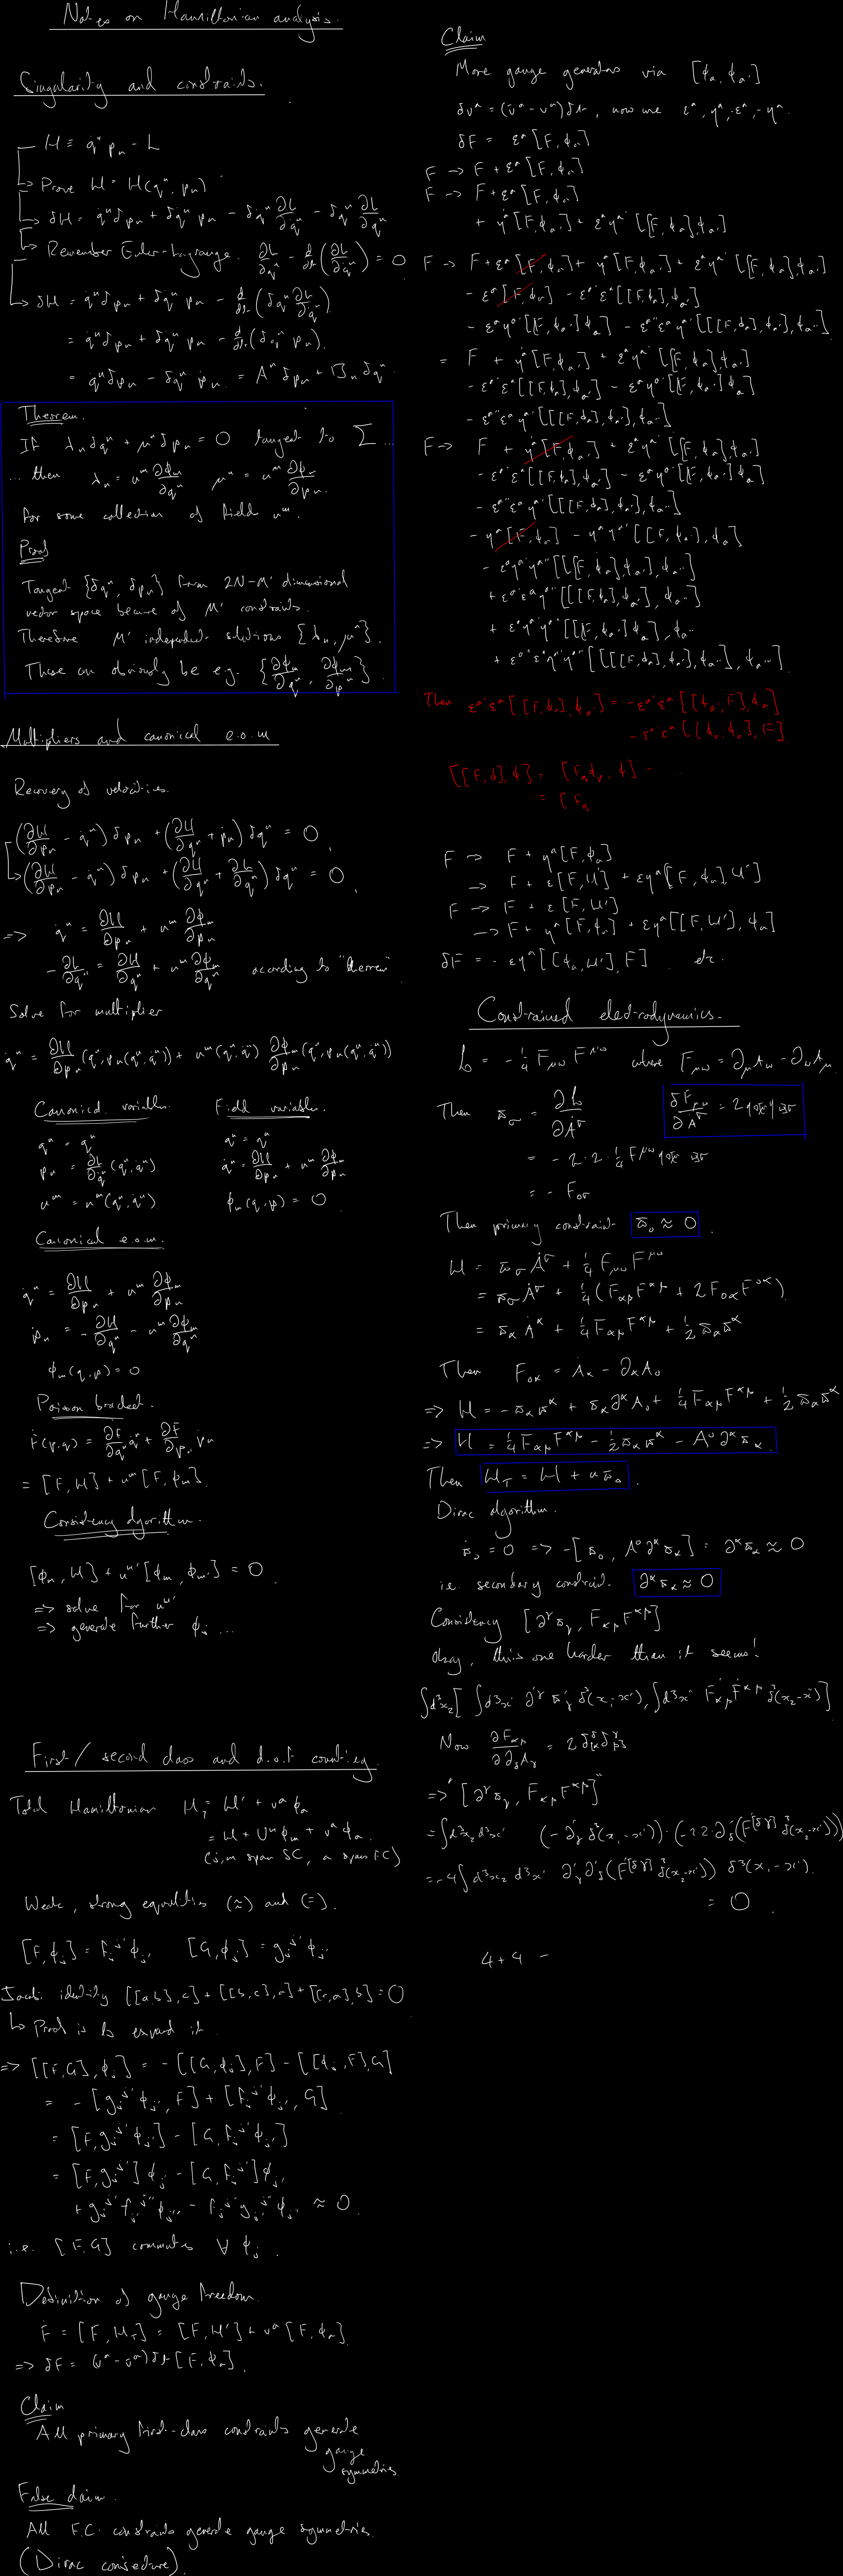 Notes on Hamiltonian analysis.
Singularity and constraints.
H ≡ q̇ⁿ pₙ - L
Prove H = H(qⁿ, pₙ)
δH = q̇ⁿδpₙ + δq̇ⁿ pₙ - δq̇ⁿ ∂L/∂q̇ⁿ - δqⁿ ∂L/∂qⁿ
Remember Euler-Lagrange. ∂L/∂qⁿ - d/dt(∂L/∂q̇ⁿ) = 0
δH = q̇ⁿδpₙ + δq̇ⁿ pₙ - d/dt(δqⁿ ∂L/∂q̇ⁿ)
= q̇ⁿδpₙ + δq̇ⁿ pₙ - d/dt(δqⁿ pₙ).
= q̇ⁿδpₙ - δqⁿ ṗₙ = Aⁿ δpₙ + Bₙ δqⁿ.
Theorem.
If λₙδqⁿ + μⁿδpₙ = 0 tangent to Σ ...
... then λₙ = uᵐ ∂φₘ/∂qⁿ μⁿ = uᵐ ∂φₘ/∂pₙ
for some collection of field uᵐ.
Proof
Tangent {δqⁿ, δpₙ} from 2N-M' dimensional
vector space because of M' constraints.
Therefore M' independent solutions {λₙ, μⁿ}.
These can obviously be e.g. {∂φₘ/∂qⁿ, ∂φₘ/∂pₙ}.
Multipliers and canonical e.o.m
Recovery of velocities.
(∂H/∂pₙ - q̇ⁿ) δpₙ + (∂H/∂qⁿ + ṗₙ) δqⁿ = 0,
(∂H/∂pₙ - q̇ⁿ) δpₙ + (∂H/∂qⁿ + ∂L/∂qⁿ) δqⁿ = 0,
=> q̇ⁿ = ∂H/∂pₙ + uᵐ ∂φₘ/∂pₙ
-∂L/∂qⁿ = ∂H/∂qⁿ + uᵐ ∂φₘ/∂qⁿ according to "theorem".
Solve for multiplier
q̇ⁿ = ∂H/∂pₙ (qⁿ, pₙ(qⁿ,q̇ⁿ)) + uᵐ(qⁿ,q̇ⁿ) ∂φₘ/∂pₙ (qⁿ, pₙ(qⁿ,q̇ⁿ))
Canonical variables. Field variables.
qⁿ = qⁿ qⁿ = qⁿ
pₙ = ∂L/∂q̇ⁿ (qⁿ,q̇ⁿ) q̇ⁿ = ∂H/∂pₙ + uᵐ ∂φₘ/∂pₙ
uᵐ = uᵐ(qⁿ,q̇ⁿ) φₘ(q,p) = 0
Canonical e.o.m.
q̇ⁿ = ∂H/∂pₙ + uᵐ ∂φₘ/∂pₙ
ṗₙ = -∂H/∂qⁿ - uᵐ ∂φₘ/∂qⁿ
φₘ(q,p) = 0
Poisson bracket.
Ḟ(p,q) = ∂F/∂qⁿ q̇ⁿ + ∂F/∂pₙ ṗₙ
= [F, H] + uᵐ[F, φₘ].
Consistency algorithm.
[φₘ, H] + uᵐ'[φₘ, φₘ'] = 0
=> solve for uᵐ'
=> generate further φⱼ ...
First/second class and d.o.f counting.
Total Hamiltonian H_T = H' + vᵃ φₐ
= H + Uᵐ φₘ + vᵃ φₐ.
(i,m span SC, a span FC)
Weak, strong equalities (≈) and (=).
[F, φⱼ] = fⱼʲ' φⱼ', [G, φⱼ] = gⱼʲ' φⱼ'
Jacobi identity [[a,b],c] + [[b,c],a] + [[c,a],b] = 0
Proof is to expand it.
=> [[F,G], φⱼ] = -[[G,φⱼ],F] - [[φⱼ,F],G]
= -[gⱼʲ' φⱼ', F] + [fⱼʲ' φⱼ', G]
= [F, gⱼʲ' φⱼ'] - [G, fⱼʲ' φⱼ']
= [F, gⱼʲ'] φⱼ' - [G, fⱼʲ'] φⱼ'
+ gⱼʲ' fⱼ'ʲ'' φⱼ'' - fⱼʲ' gⱼ'ʲ'' φⱼ'' ≈ 0
i.e. [F,G] commutes ∀ φⱼ.
Definition of gauge freedom.
Ḟ = [F, H_T] = [F, H'] + vᵃ [F, φₐ].
=> δF = (vᵃ - ṽᵃ)δt [F, φₐ].
Claim
All primary first-class constraints generate
gauge
symmetries.
False claim.
All F.C. constraints generate gauge symmetries.
(Dirac conjecture).
Claim
More gauge generators via [φₐ, φₐ']
δvᵃ = (ṽᵃ - vᵃ)δt, now use εᵃ, ηᵃ, -εᵃ, -ηᵃ.
δF = εᵃ [F, φₐ]
F → F + εᵃ [F, φₐ]
F → F + εᵃ [F, φₐ]
+ ηᵃ'[F, φₐ'] + εᵃηᵃ'[[F, φₐ], φₐ']
F → F + εᵃ[F, φₐ] + ηᵃ'[F, φₐ'] + εᵃηᵃ'[[F, φₐ], φₐ']
- εᵃ[F, φₐ] - εᵃ'εᵃ[[F, φₐ], φₐ']
- εᵃηᵃ'[[F, φₐ'], φₐ] - εᵃ''εᵃηᵃ'[[[F, φₐ], φₐ'], φₐ'']
= F + ηᵃ'[F, φₐ'] + εᵃηᵃ'[[F, φₐ], φₐ']
- εᵃ'εᵃ[[F, φₐ], φₐ'] - εᵃηᵃ'[[F, φₐ'], φₐ]
- εᵃ''εᵃηᵃ'[[[F, φₐ], φₐ'], φₐ'']
F → F + ηᵃ'[F, φₐ'] + εᵃηᵃ'[[F, φₐ], φₐ']
- εᵃ'εᵃ[[F, φₐ], φₐ'] - εᵃηᵃ'[[F, φₐ'], φₐ]
- εᵃ''εᵃηᵃ'[[[F, φₐ], φₐ'], φₐ'']
- ηᵃ[F, φₐ] - ηᵃηᵃ'[[F, φₐ'], φₐ]
- εᵃηᵃ'ηᵃ''[[[F, φₐ], φₐ'], φₐ'']
+ εᵃ'εᵃηᵃ''[[[F, φₐ], φₐ'], φₐ'']
+ εᵃηᵃ'ηᵃ''[[[F, φₐ'], φₐ], φₐ'']
+ εᵃ''εᵃηᵃ'ηᵃ'''[[[[F, φₐ], φₐ'], φₐ''], φₐ''']
Then εᵃ'εᵃ[[F, φₐ], φₐ'] = -εᵃ'εᵃ[[φₐ', F], φₐ]
- εᵃ'εᵃ[[φₐ, φₐ'], F]
F → F + ηᵃ[F, φₐ]
→ F + ε[F, H'] + εηᵃ[[F, φₐ], H']
F → F + ε[F, H']
→ F + ηᵃ[F, φₐ] + εηᵃ[[F, H'], φₐ]
δF = - εηᵃ[[φₐ, H'], F] etc.
Constrained electrodynamics.
L = -¼ F_μν F^μν where F_μν = ∂_μA_ν - ∂_νA_μ.
Then ϖ_σ = ∂L/∂Ȧ^σ
= -2·2·¼ F^μν
= -F_0σ
Then primary constraint ϖ₀ ≈ 0.
H = ϖ_σ Ȧ^σ + ¼ F_μν F^μν
= ϖ_σ Ȧ^σ + ¼(F_αβ F^αβ + 2F_0α F^0α)
= ϖ_α Ȧ^α + ¼ F_αβ F^αβ + ½ ϖ_α ϖ^α
Then F_0α = Ȧ_α - ∂_αA₀
=> H = -ϖ_α ϖ^α + ϖ_α ∂^αA₀ + ¼ F_αβ F^αβ + ½ ϖ_α ϖ^α
=> H = ¼ F_αβ F^αβ - ½ ϖ_α ϖ^α - A⁰ ∂^α ϖ_α.
Then H_T = H + u ϖ₀.
Dirac algorithm.
ϖ̇₀ = 0 => -[ϖ₀, A⁰ ∂^α ϖ_α] = ∂^α ϖ_α ≈ 0
i.e. secondary constraint. ∂^α ϖ_α ≈ 0
Consistency [∂^γ ϖ_γ, F_αβ F^αβ]
Okay, this one harder than it seems!
∫d³x₂[∫d³x' ∂'^γ ϖ'_γ δ³(x₁-x'), ∫d³x'' F_αβ F^αβ δ³(x₂-x'')]
Now ∂F_αβ/∂∂_δA_γ = 2 δ^δ_[α δ^γ_β]
=> "[∂^γ ϖ_γ, F_αβ F^αβ]"
= ∫d³x₂d³x' (-∂'_γ δ³(x₁-x'))·(-2·2·∂'_δ(F'^[δγ] δ³(x₂-x')))
= -4∫d³x₂ d³x' ∂'_γ∂'_δ(F'^[δγ] δ³(x₂-x')) δ³(x₁-x').
= 0.
4+4 -